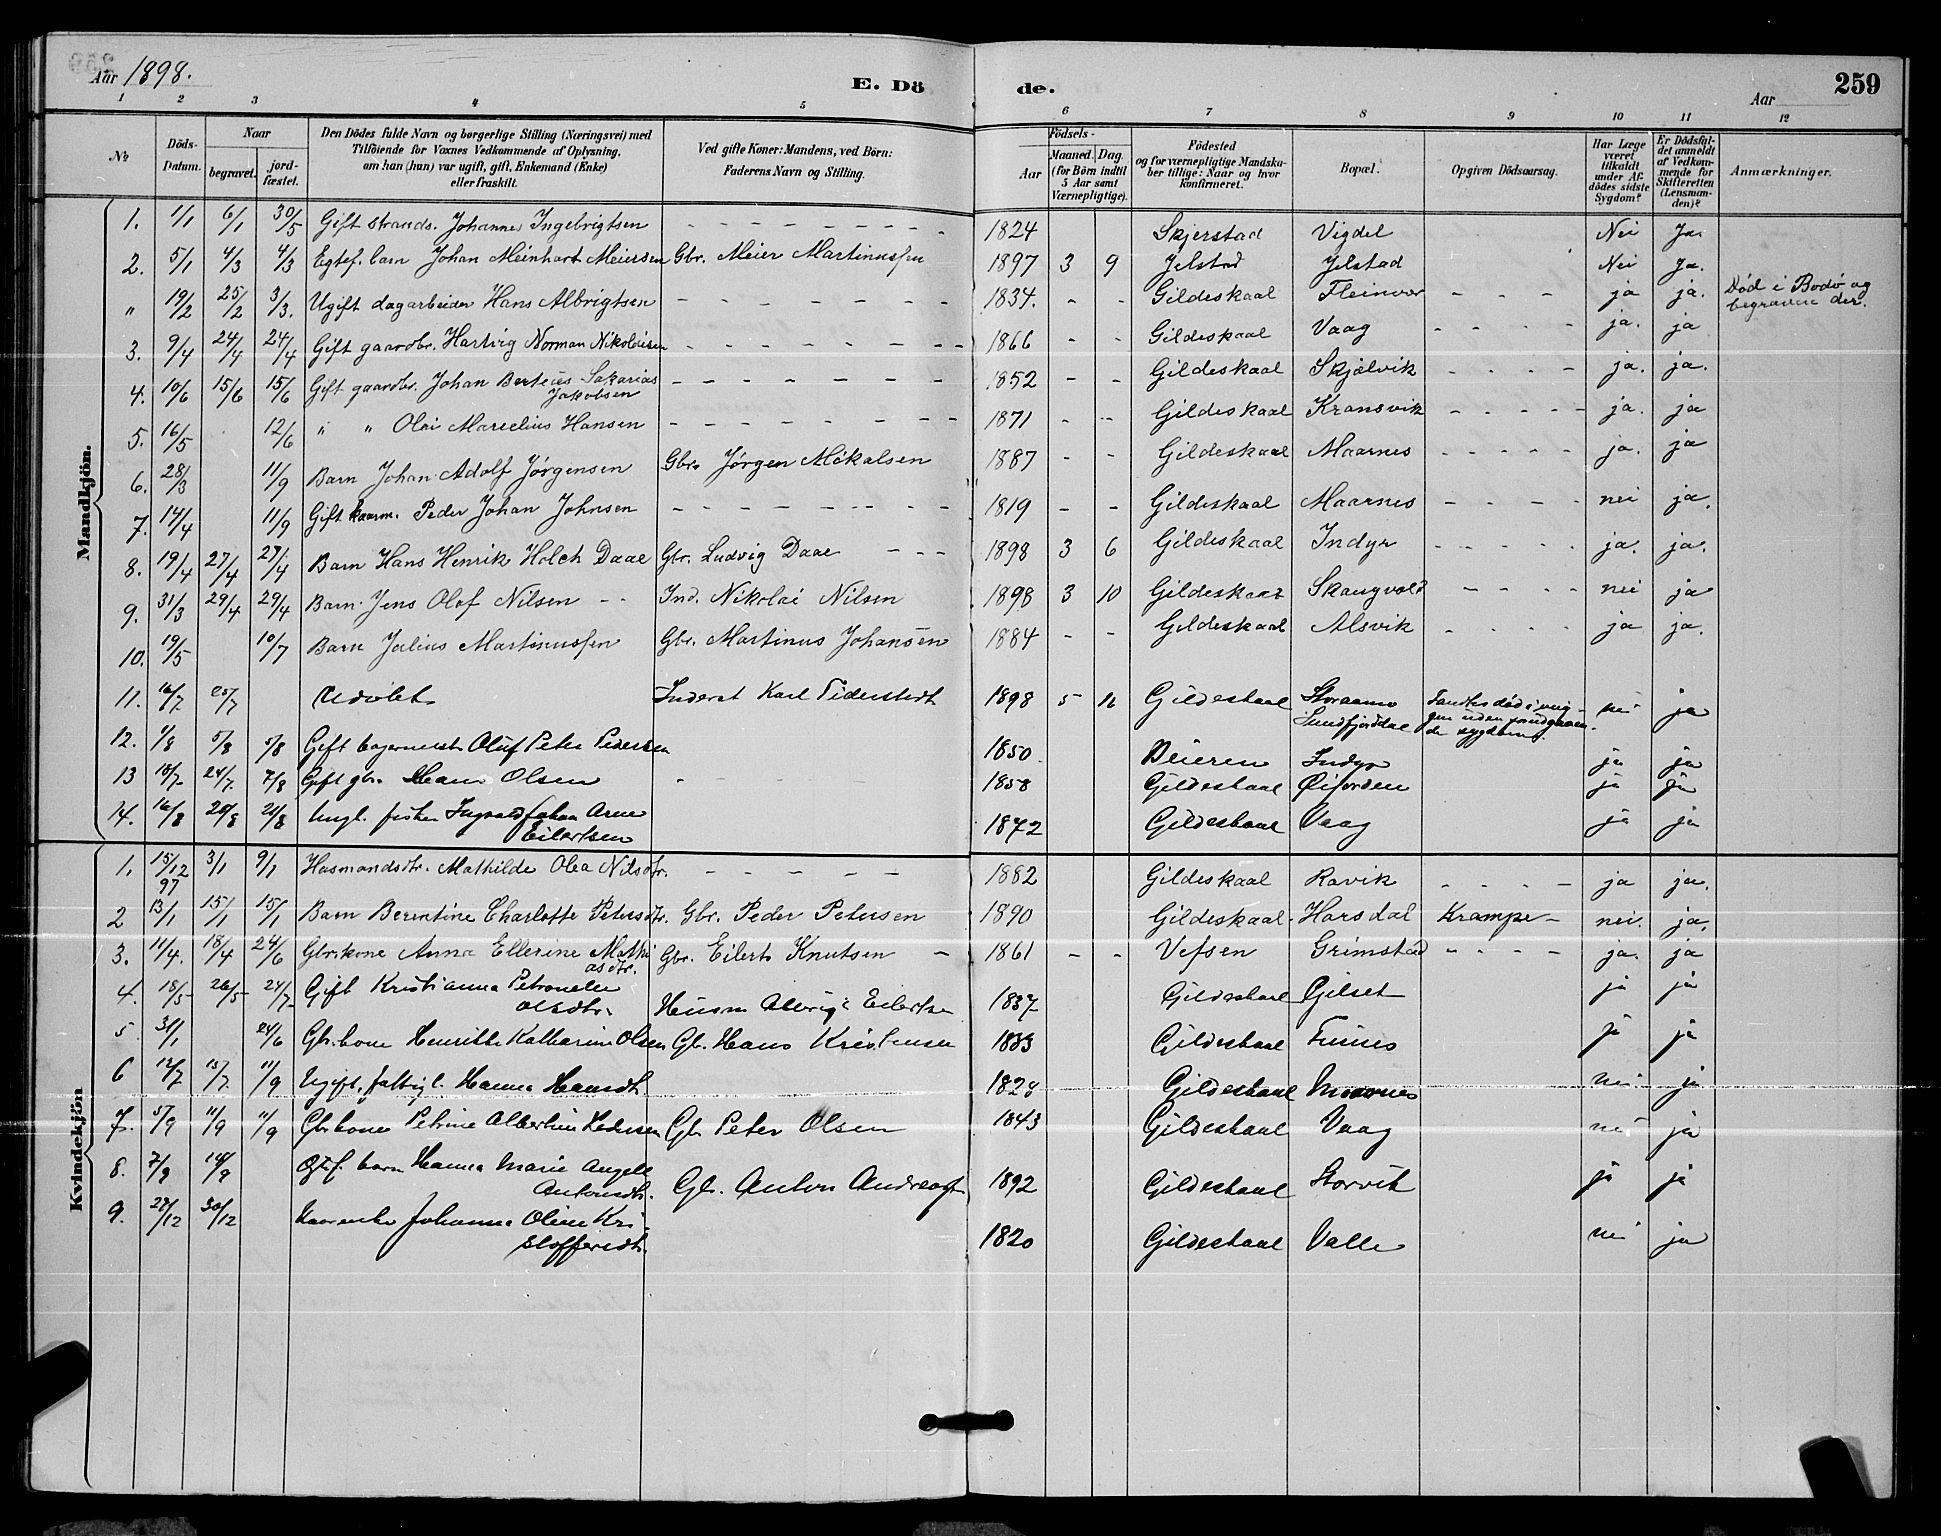 Aar 1898.
E. Dö
de.
259
Aar
1 2 3 4 5 6 7 8 9 10 11 12
№
Döds-
Datum.
Naar
begravet.
jord-
fæstet.
Den Dödes fulde Navn og borgerlige Stilling (Næringsvei) med
Tilföiende for Voxnes Vedkommende af Oplysning,
om han (hun) var ugift, gift, Enkemand (Enke)
eller fraskilt.
Ved gifte Koner: Mandens, ved Börn:
Faderens Navn og Stilling.
Födsels-
Aar
Maaned.
Dag.
(for Börn indtil
5 Aar samt
Værnepligtige).
Födested
og for værnepligtige Mandska-
ber tillige: Naar og hvor
konfirmeret.
Bopæl.
Opgiven Dödsaarsag.
Har Læge
været
tilkaldt
under Af-
dödes sidste
Sygdom?
Er Dödsfal-
det anmeldt
af Vedkom-
mende for
Skifteretten
(Lensman-
den)?
Anmærkninger.
Mandkjön.
1. 1/1 6/1 30/5 Gift strands. Johannes Ingebrigtsen - - - 1824 Skjerstad Vigdel Nei Ja.
2. 5/1 4/3 4/3 Egtef. barn Johan Meinhart Meiersen Gbr. Meier Martinussen 1897 3 9 Jelstad Jelstad Nei Ja.
" 19/2 25/2 3/3. Ugift dagarbeider Hans Albrigtsen - - - 1834. - - Gildeskaal Fleinvær - - - ja ja. Död i Bodø og
begraven der.
3. 9/4 24/4 24/4 Gift gaardbr. Hartvig Norman Nikolaisen - - - 1866 - - Gildeskaal Vaag - - - ja. ja
4. 10/6 15/6 15/6 Gift gaardbr. Johan Berteus Sakarias
Jakobsen - - - 1852 - - Gildeskaal Skjælvik - - - ja. ja.
5. 16/5 12/6 " " Olai Marselius Hansen - - - 1871 - - Gildeskaal Kransvik - - - ja. ja
6. 28/3 11/9 Barn Johan Adolf Jørgensen Gbr. Jørgen Mikalsen 1887 - - Gildeskaal Maarnes - - - ja. ja
7. 14/4 11/9 Gift kaarm. Peder Johan Johnsen - - - 1819 - - Gildeskaal Maarnes - - - nei ja.
8. 19/4 27/4 27/4 Barn Hans Henrik Holch Daae Gbr. Ludvig Daae - - - 1898 3 6 Gildeskaal Indyr - - - ja. ja.
9. 31/3 29/4 29/4 Barn Jens Olaf Nilsen - - Ind. Nikolai Nilsen 1898 3 10 Gildeskaal Skaugvold - - - nei ja
10. 19/5 10/7 Barn Julius Martinussen Gbr. Martinus Johansen 1884 - - Gildeskaal Alsvik - - - ja ja.
11. 16/7 25/7 Udöbt Inderst Karl Tiderstedt 1898 5 16 Gildeskaal Storaamo
Sundsfjorddal Fandtes död i vug-
gen uden forudgaaen-
de sygdom. nei ja
12. 1/8 5/8 5/8 Gift Oluf Peter Pedersen 1850 Beieren Indyr ja ja
13 18/7 24/7 7/8 Gift gbr. Hans Olsen - - 1858 Gildeskaal Øifjorden ja ja
14. 16/8 20/8 21/8 Ungk. fisker Ingvald Johan Arne
Eilertsen 1872 Gildeskaal Vaag ja ja
Kvindekjön
1. 15/12 97 3/1 9/1 Husmandsdtr. Mathilde Olea Nilsdtr. - - - 1882 Gildeskaal Ravik - - - ja ja.
2 13/1 15/1 15/1 Barn Berentine Charlotte Petersdtr. Gbr. Peder Petersen 1890 Gildeskaal Horsdal Krampe - nei. ja.
3. 11/4. 18/4 24/6 Gbrskone Anna Ellerine Mathi
asdtr. Gbr. Eilert Knutsen - 1861 - - Vefsen Grimstad - - - ja. ja
4. 18/5 26/5 24/7 Gift Kristianna Petronelle
Olsdtr. Husm Albrigt Eilertsen 1837 Gildeskaal Gilset ja ja
5. 31/1 24/6 Gbr.kone Henrikke Katharina Olsen Gb. Hans Kristensen 1833 Gildeskaal Finnes ja ja
6 12/7 15/7. 11/9 Ugift, fattigl. Hanna Hansdtr. 1828 Gildeskaal Maarnes nei ja
7. 5/9 11/9 11/9 Gbrkone Petrine Albertine Pedersen Gbr Peter Olsen 1843 Gildeskaal Vaag nei ja
8. 7/9 14/9 Egtef. barn Hanna Marie Angell
Antonsdtr. Gbr. Anton Andreas 1892 Gildeskaal Storvik ja ja
9. 22/12 30/12 Kaarenke Johanna Oline Kri-
stoffersdtr. 1820 Gildeskaal Valle nei ja